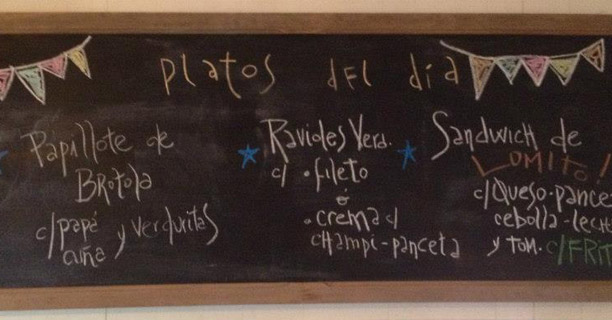 Platos del día
Papillote de
Brotola
c/papa y verduritas
cuña
Ravioles Verd.
c/ . fileto
ó
. crema c/
champi-panceta
Sandwich de
LOMITO!
c/Queso-pance
cebolla-lech
y tom. c/FRIT